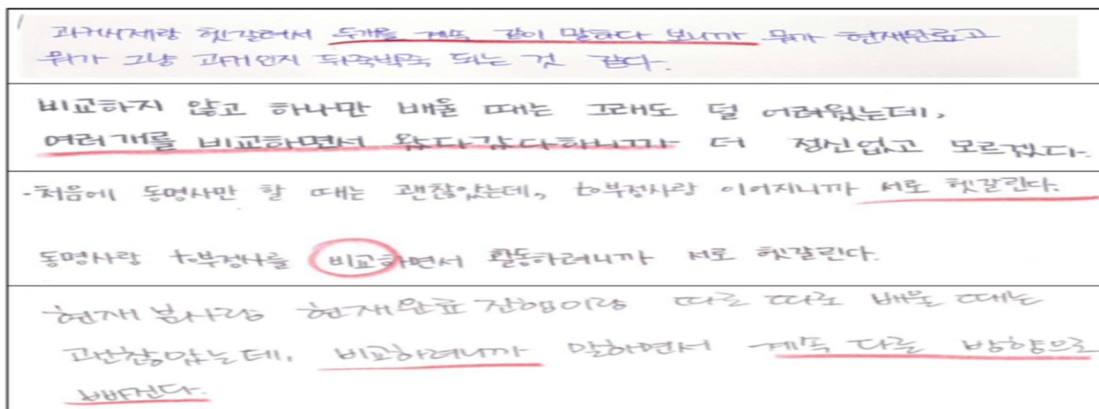 과거시제랑 헷갈려서 두개를 계속 같이 말하다 보니까 뭐가 현재완료고
뭐가 그냥 과거인지 뒤죽박죽 되는 것 같다.
비교하지 않고 하나만 배울 때는 그래도 덜 어려웠는데,
여러개를 비교하면서 왔다갔다하니까 더 정신없고 모르겠다.
-처음에 동명사만 할 때는 괜찮았는데, to부정사랑 이어지니까 서로 헷갈린다.
동명사랑 to부정사를 비교하면서 활동하려니까 서로 헷갈린다.
현재 분사랑 현재완료 진행이랑 따로 따로 배울 때는
괜찮았는데, 비교하려니까 말하면서 계속 다른 방향으로
빠진다.